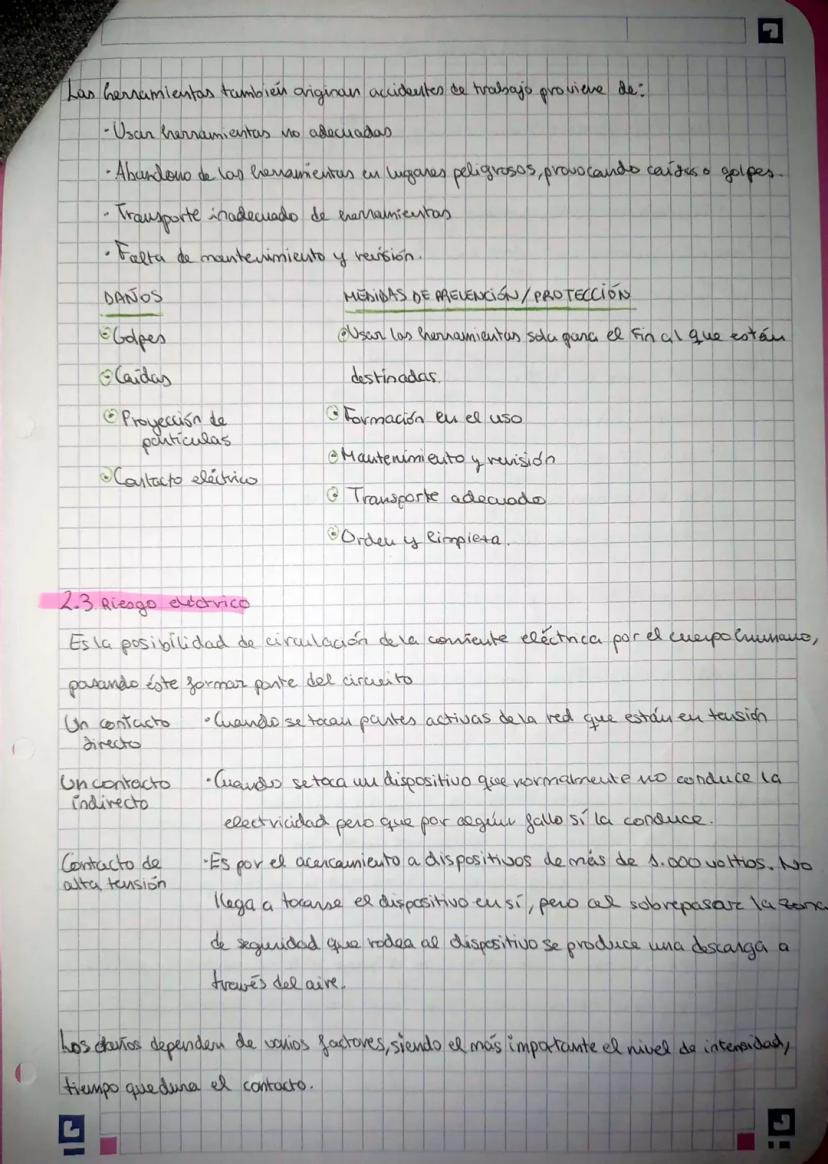 Las herramientas también originan accidentes de trabajo proviene de:
· Usar herramientas no adecuadas
· Abandono de las herramientas en lugares peligrosos, provocando caídas o golpes.
· Transporte inadecuado de herramientas
· Falta de mantenimiento y revisión.
DAÑOS MEDIDAS DE PREVENCIÓN/PROTECCIÓN
Golpes Usar las herramientas solo para el fin al que están
Caídas destinadas.
Proyección de Formación en el uso
partículas
Mantenimiento y revisión
Contacto eléctrico
Transporte adecuado
Orden y limpieza.
2.3 Riesgo eléctrico
Es la posibilidad de circulación de la corriente eléctrica por el cuerpo humano,
pasando éste formar parte del circuito
Un contacto · Cuando se tocan partes activas de la red que están en tensión
directo
Un contacto · Cuando se toca un dispositivo que normalmente no conduce la
indirecto
electricidad pero que por algún fallo sí la conduce.
Contacto de · Es por el acercamiento a dispositivos de más de 1.000 voltios. No
alta tensión
llega a tocarse el dispositivo en sí, pero al sobrepasar la zona
de seguridad que rodea al dispositivo se produce una descarga a
través del aire.
Los daños dependen de varios factores, siendo el más importante el nivel de intensidad,
tiempo que dura el contacto.